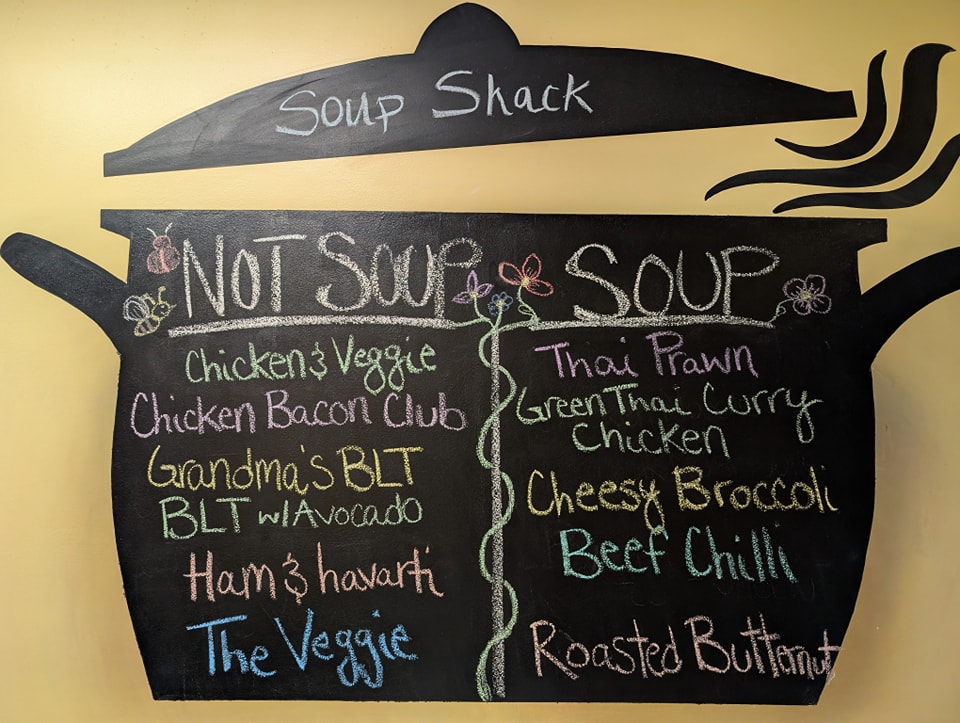 Soup Shack
NOT SOUP
Chicken & Veggie
Chicken Bacon Club
Grandma's BLT
BLT w/Avocado
Ham & havarti
The Veggie
SOUP
Thai Prawn
Green Thai Curry
Chicken
Cheesy Broccoli
Beef Chilli
Roasted Butternut